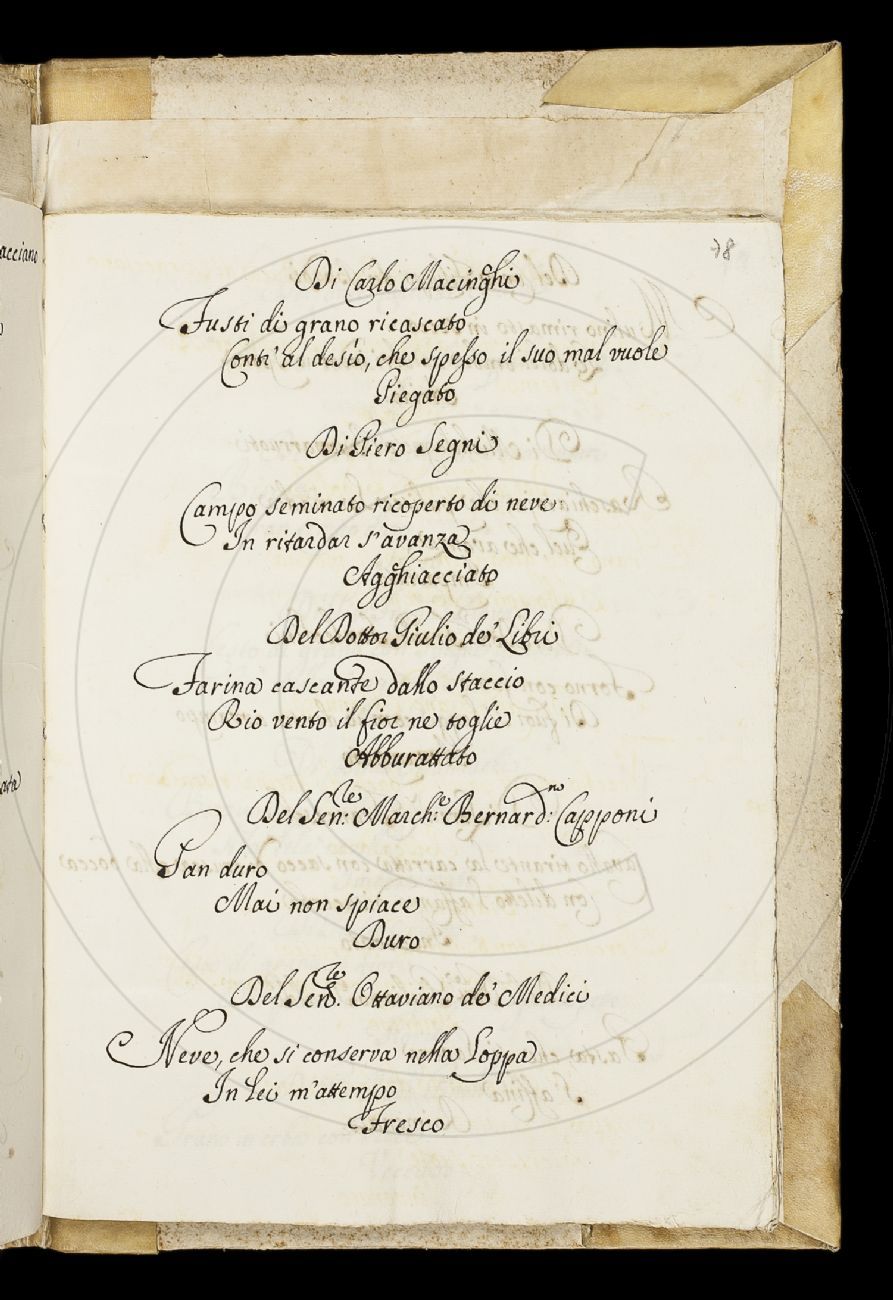 78
Di Carlo Macinghi
Fusti di grano ricascato
Conti' al desio, che spesso il suo mal vuole
Piegato
Di Piero Segni
Campo seminato ricoperto di neve
In ritardar s'avanza
Agghiacciato
Del Dottor Giulio de' Libri
Farina cascante dallo staccio
Rio vento il fior ne toglie
Abburattato
Del Sen:le March:e Bernard:no Capponi
Pan duro
Mai non spiace
Duro
Del Sen:le Ottaviano de' Medici
Neve, che si conserva nella Loppa
In lei m'attempo
Fresco
acciano
ata